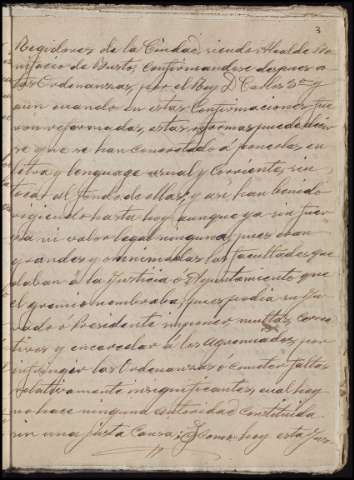 3
Regidores de la Ciudad, siendo Alcalde Bo-
nifacio de Bustos. Confirmandose despues
las Ordenanzas, por el Rey D. Carlos 3º y
aun cuando en estas confirmaciones fue
ron reformadas, estas reformas puede decir
se que se han concretado á ponerlas en
letra y lenguage usual y corriente, sin
tocar al fondo de ellas, y asi han venido
rigiendo hasta hoy, aunque ya sin fuer
za ni valor legal ninguno, pues eran
grandes y omnimodas las facultades que
daban á la Justicia o Ayuntamiento que
el gremio nombraba, pues podia su Ju-
rado ó Presidente imponer multas, correc
tivos y encarcelar á los agremiados, por
infringir las Ordenanzas ó cometer faltas
relativamente insignificantes, cual hoy
no hace ninguna autoridad constituida
sin una justa causa; y como hoy esta Jus-